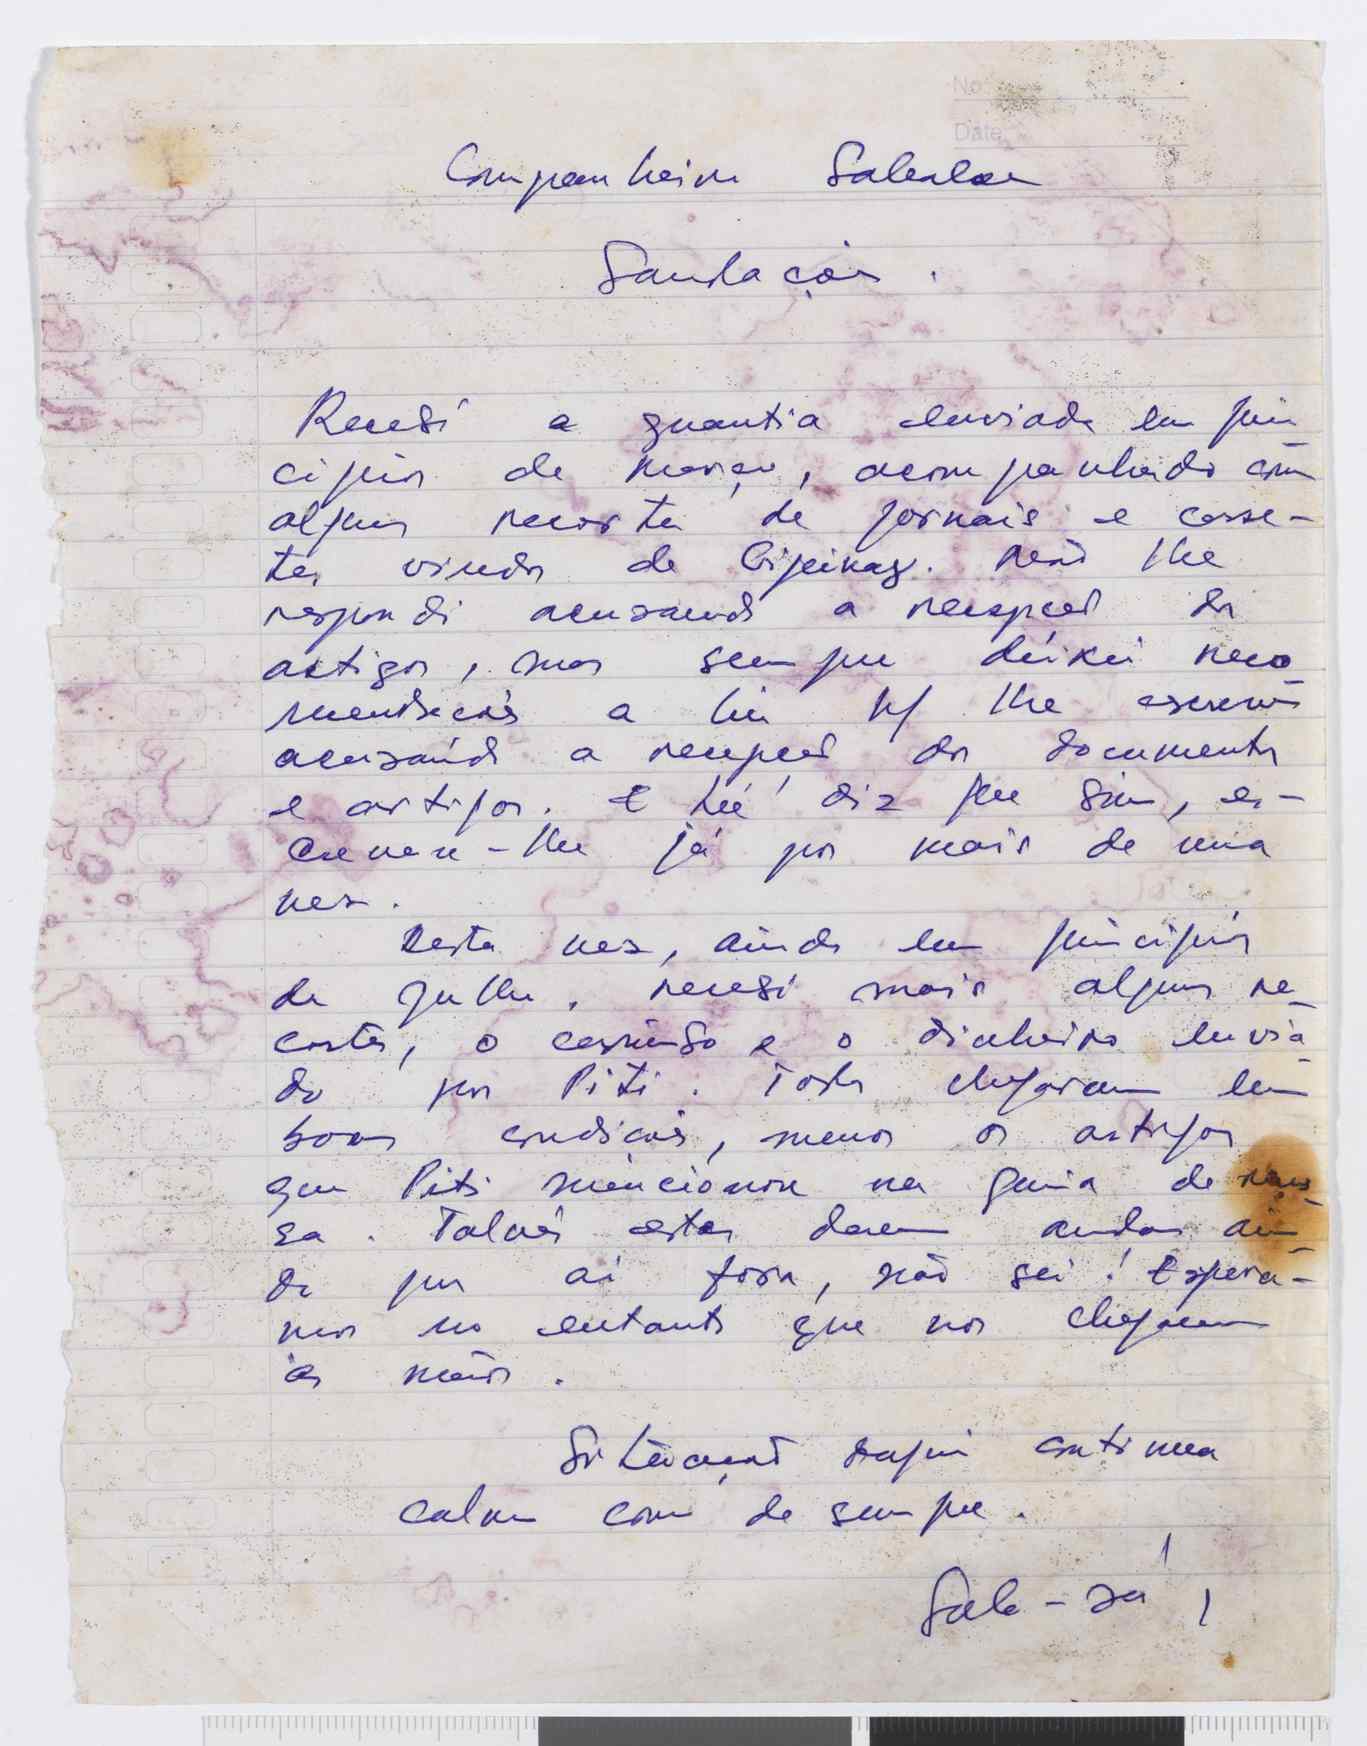 No.
Date
Companheiro Sabalae
Saudações.
Recebi a quantia enviada em prin-
cipios de março, acompanhado com
alguns recortes de jornais e casse-
tes vindos de Cipinag. Não lhe
respondi acusando a recepção dos
artigos, mas sempre deixei reco-
mendações a Lu p/ lhe escrever
acusando a recepção dos documentos
e artigos. E Lu diz que sim, es-
creveu-lhe já por mais de uma
vez.
Desta vez, ainda em principios
de Julho, recebi mais alguns re-
cortes, o carimbo e o dinheiro envia-
do por Piti. Todos chegaram em
boas condições, menos os artigos
que Piti mencionou na guia de remes-
sa. Talvés estes devem andar ain-
da por aí fora, não sei! Espera-
mos no entanto que nos cheguem
às mãos.
Situação daqui continua
calma como de sempre.